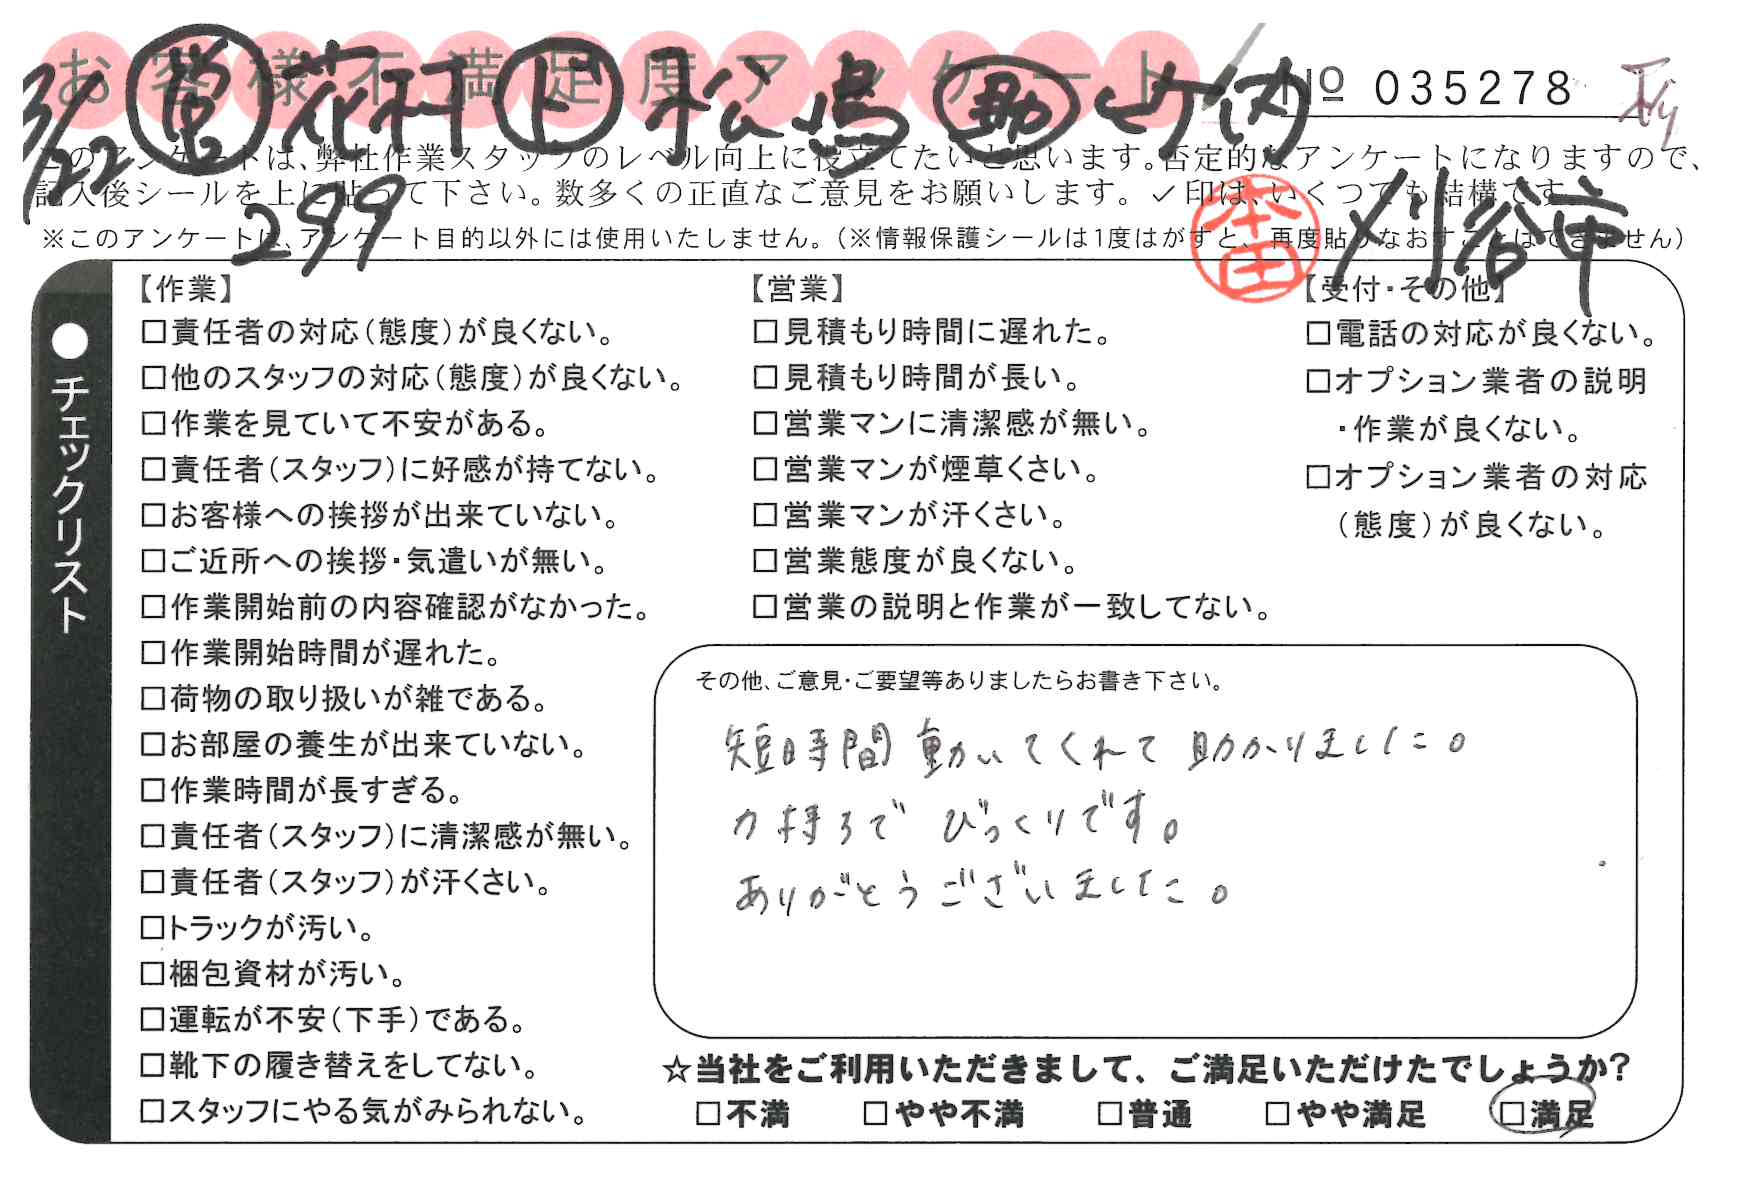 お客様不満足度アンケート
No 035278
3/22 営 花村 ド 松島 助 竹内
299
刈谷市
本田
このアンケートは、弊社作業スタッフのレベル向上に役立てたいと思います。否定的なアンケートになりますので、
記入後シールを上に貼って下さい。数多くの正直なご意見をお願いします。✓印は、いくつでも結構です。
※このアンケートは、アンケート目的以外には使用いたしません。(※情報保護シールは1度はがすと、再度貼りなおすことはできません)
●チェックリスト
【作業】
□責任者の対応(態度)が良くない。
□他のスタッフの対応(態度)が良くない。
□作業を見ていて不安がある。
□責任者(スタッフ)に好感が持てない。
□お客様への挨拶が出来ていない。
□ご近所への挨拶・気遣いが無い。
□作業開始前の内容確認がなかった。
□作業開始時間が遅れた。
□荷物の取り扱いが雑である。
□お部屋の養生が出来ていない。
□作業時間が長すぎる。
□責任者(スタッフ)に清潔感が無い。
□責任者(スタッフ)が汗くさい。
□トラックが汚い。
□梱包資材が汚い。
□運転が不安(下手)である。
□靴下の履き替えをしてない。
□スタッフにやる気がみられない。
【営業】
□見積もり時間に遅れた。
□見積もり時間が長い。
□営業マンに清潔感が無い。
□営業マンが煙草くさい。
□営業マンが汗くさい。
□営業態度が良くない。
□営業の説明と作業が一致してない。
【受付・その他】
□電話の対応が良くない。
□オプション業者の説明
・作業が良くない。
□オプション業者の対応
(態度)が良くない。
その他、ご意見・ご要望等ありましたらお書き下さい。
短時間動いてくれて助かりました。
力持ちでびっくりです。
ありがとうございました。
☆当社をご利用いただきまして、ご満足いただけたでしょうか?
□不満 □やや不満 □普通 □やや満足 □満足